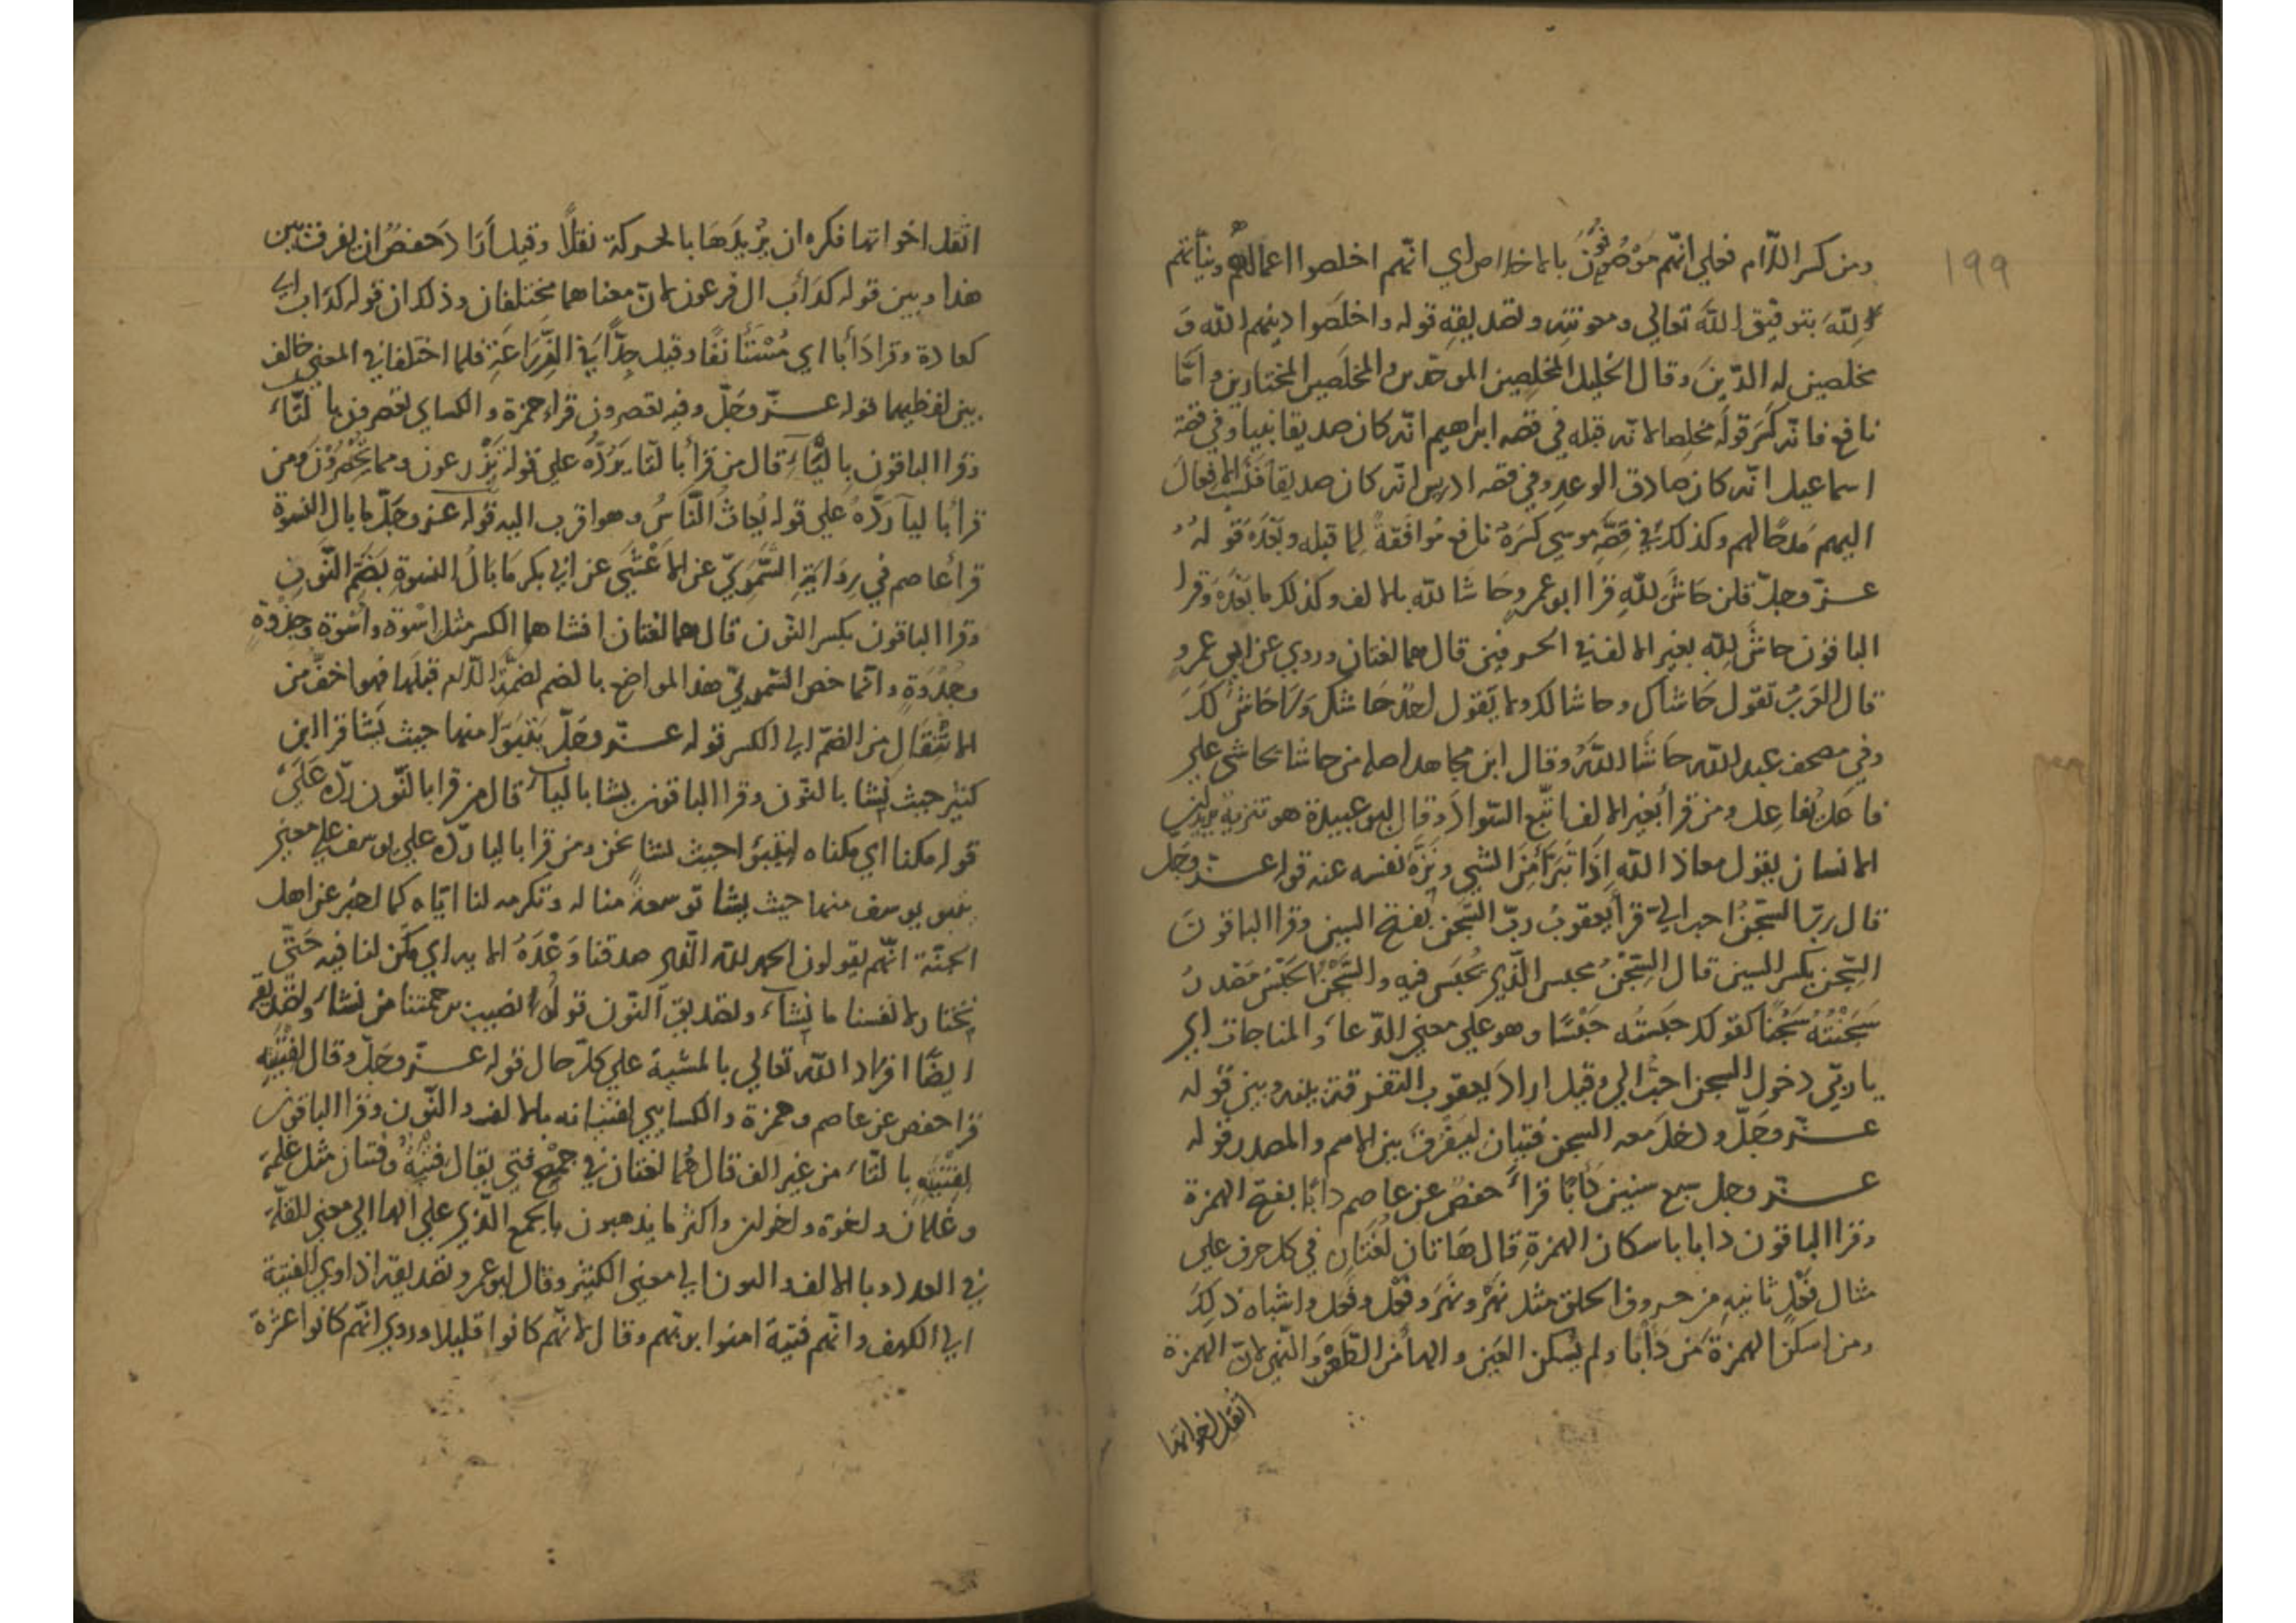 ١٩٩
ومن كسر اللّام فعلي انّهم موصوفون بالاخلاص اي انّهم اخلصوا اعمالهم ونيّاتهم
للّه بتوفيق اللّه تعالي ومعونته وتصديقه قوله واخلصوا دينهم للّه و
مخلصين له الدّين وقال الخليل المخلِصين الموحّدين والمخلَصين المختارين وامّا
نافع فانّه كسر قوله مخلصا لانّه قبله في قصه ابراهيم انّه كان صديقا نبيا وفي قصة
اسماعيل انّه كان صادق الوعد وفي قصه ادريس انّه كان صديقا فنسب الافعال
اليهم مدحًا لهم وكذلك في قصّه موسي كسره نافع موافقةً لما قبله وبعده قوله
عزّ وجلّ قلن حاشَ للّه قرا ابو عمرو حاشا للّه بالالف وكذلك ما بعده وقرا
الباقون حاشَ للّه بغير الالف في الحرفين قال هما لغتان وروي عن ابي عمرو
قال العرب تقول حاشاك وحاشا لك ولا يقول احد حاشك ولا حاش لك
وفي مصحف عبد اللّه حاشا اللّه وقال ابن مجاهد اصله من حاشا يحاشي علي
فاعل يفاعل ومن قرأ بغير الالف اتّبع السّواد وقال ابو عبيدة هو تنزيه
الانسان يقول معاذ اللّه اذا تبرّأ من الشي ونزّه نفسه عنه قوله عزّ وجل
قال ربّ السّجن احب اليّ قرأ يعقوب ربّ السَّجن بفتح السين وقرا الباقون
السِّجن بكسر السين قال السِّجن محبس الّذي يُحبَس فيه والسَّجن الحبس مصدر
سَجَنْتُه سَجْنًا كقولك حبستُه حَبْسًا وهو علي معني الدّعاء والمناجات اي
يا ربّي دخول السجن احبّ الي وقيل اراد يعقوب التفرقة بينه وبين قوله
عزّ وجلّ ودخل معه السجن فتيان ليفرق بين الاسم والمصدر قوله
عزّ وجل سبع سنين دأبًا قرأ حفص عن عاصم دابًا بفتح الهمزة
وقرا الباقون دابا باسكان الهمزة قال هاتان لغتان في كل حرف علي
مثال فعل ثانيه من حروف الحلق مثل نهْر ونهَر وفعْل وفعَل واشباه ذلك
ومن اسكن الهمزة من دأبا ولم يسكن العين والها من الظعن والنهر لانّ الهمزة
اثقل اخواتها
اثقل اخواتها فكره ان يزيدها بالحركة ثقلًا وقيل اراد حفصٌ ان يفرق بين
هذا وبين قوله كدأب ال فرعون لانّ معناهما مختلفان وذلك ان قوله كداب اي
كعادة وقرا دأبا اي مستأنفًا وقيل جدًّا في الزراعة فلما اختلفا في المعني خالف
بين لفظيهما قوله عزّ وجلّ وفيه يعصرون قراء حمزة والكساي تعصرون بالتّاء
وقرا الباقون بالياء قال من قرأ بالتا يردّه علي قوله تزرعون ومما تحصنون ومن
قرأ باليا ردّه علي قوله يُغاث النّاس وهو اقرب اليه قوله عزّ وجلّ ما بال النسوة
قرأ عاصم في رواية الشّموني عن الاعشي عن ابي بكر ما بال النسوة بضمّ النّون
وقرا الباقون بكسر النّون قال هما لغتان افشاهما الكسر مثل اِسْوة واُسوة وجِذوة
وجُذوة وانّما خص الشّموني هذا المواضع بالضم لضمّة اللّام قبلها فهو اخفّ من
الانتقال من الضمّ الي الكسر قوله عزّ وجلّ يتبوّا منها حيث يشا قرا ابن
كثير حيث نشا بالنّون وقرا الباقون يشا باليا قال من قرا بالنّون ردّه علي
قوله مكنا اي مكناه ليتبوّا حيث نشا نحن ومن قرا باليا ردّه علي يوسف علي معني
يتبوّ يوسف منها حيث يشا توسعةً منا له وتكرمه لنا ايّاه كما اخبر عن اهل
الجنّة انّهم يقولون الحمد للّه الّذي صدقنا وعده الايه اي مكّن لنا فيه حتّي
نختار لانفسنا ما نشاء وتصديق النّون قوله نصيب برحمتنا من نشاء وتصديقه
ايضًا افراد اللّه تعالي بالمشية علي كلّ حال قوله عزّ وجلّ وقال لفتيته
قرا حفص عن عاصم وحمزة والكسايي لفتيانه بالالف والنّون وقرا الباقون
لفتيته بالتّاء من غير الف قال هما لغتان في جمع فتي يقال فتية وفتيان مثل غلمة
وغلمان واخوة واخوان واكثر ما يذهبون بالجمع الّذي علي الها الي معني القلّة
في العدد وبالالف والنون الي معني الكثير وقال ابو عمرو تصديقه اذ اوي الفتية
الي الكهف وانّهم فتية امنوا بربّهم وقال لانّهم كانوا قليلا وروي انّهم كانوا عشرة